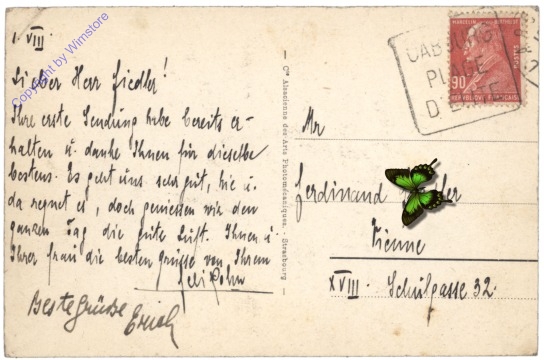 1. VIII.
Copyright by Wimstore
Lieber Herr Fiedler!
Ihre erste Sendung habe bereits er-
halten u. danke Ihnen für dieselbe
bestens. Es geht uns sehr gut, hie u.
da regnet es, doch geniessen wir den
ganzen Tag die gute Luft. Ihnen u.
Ihrer Frau die besten Grüsse von Ihrem
Beste Grüße Erich
— Cie Alsacienne des Arts Photomécaniques. - Strasbourg —
MARCELIN BERTHELOT
POSTES
90
REPUBLIQUE FRANÇAISE
CABOURG
PLAGE
Mr
Ferdinand
Vienne
XVIII. Schulgasse 32.